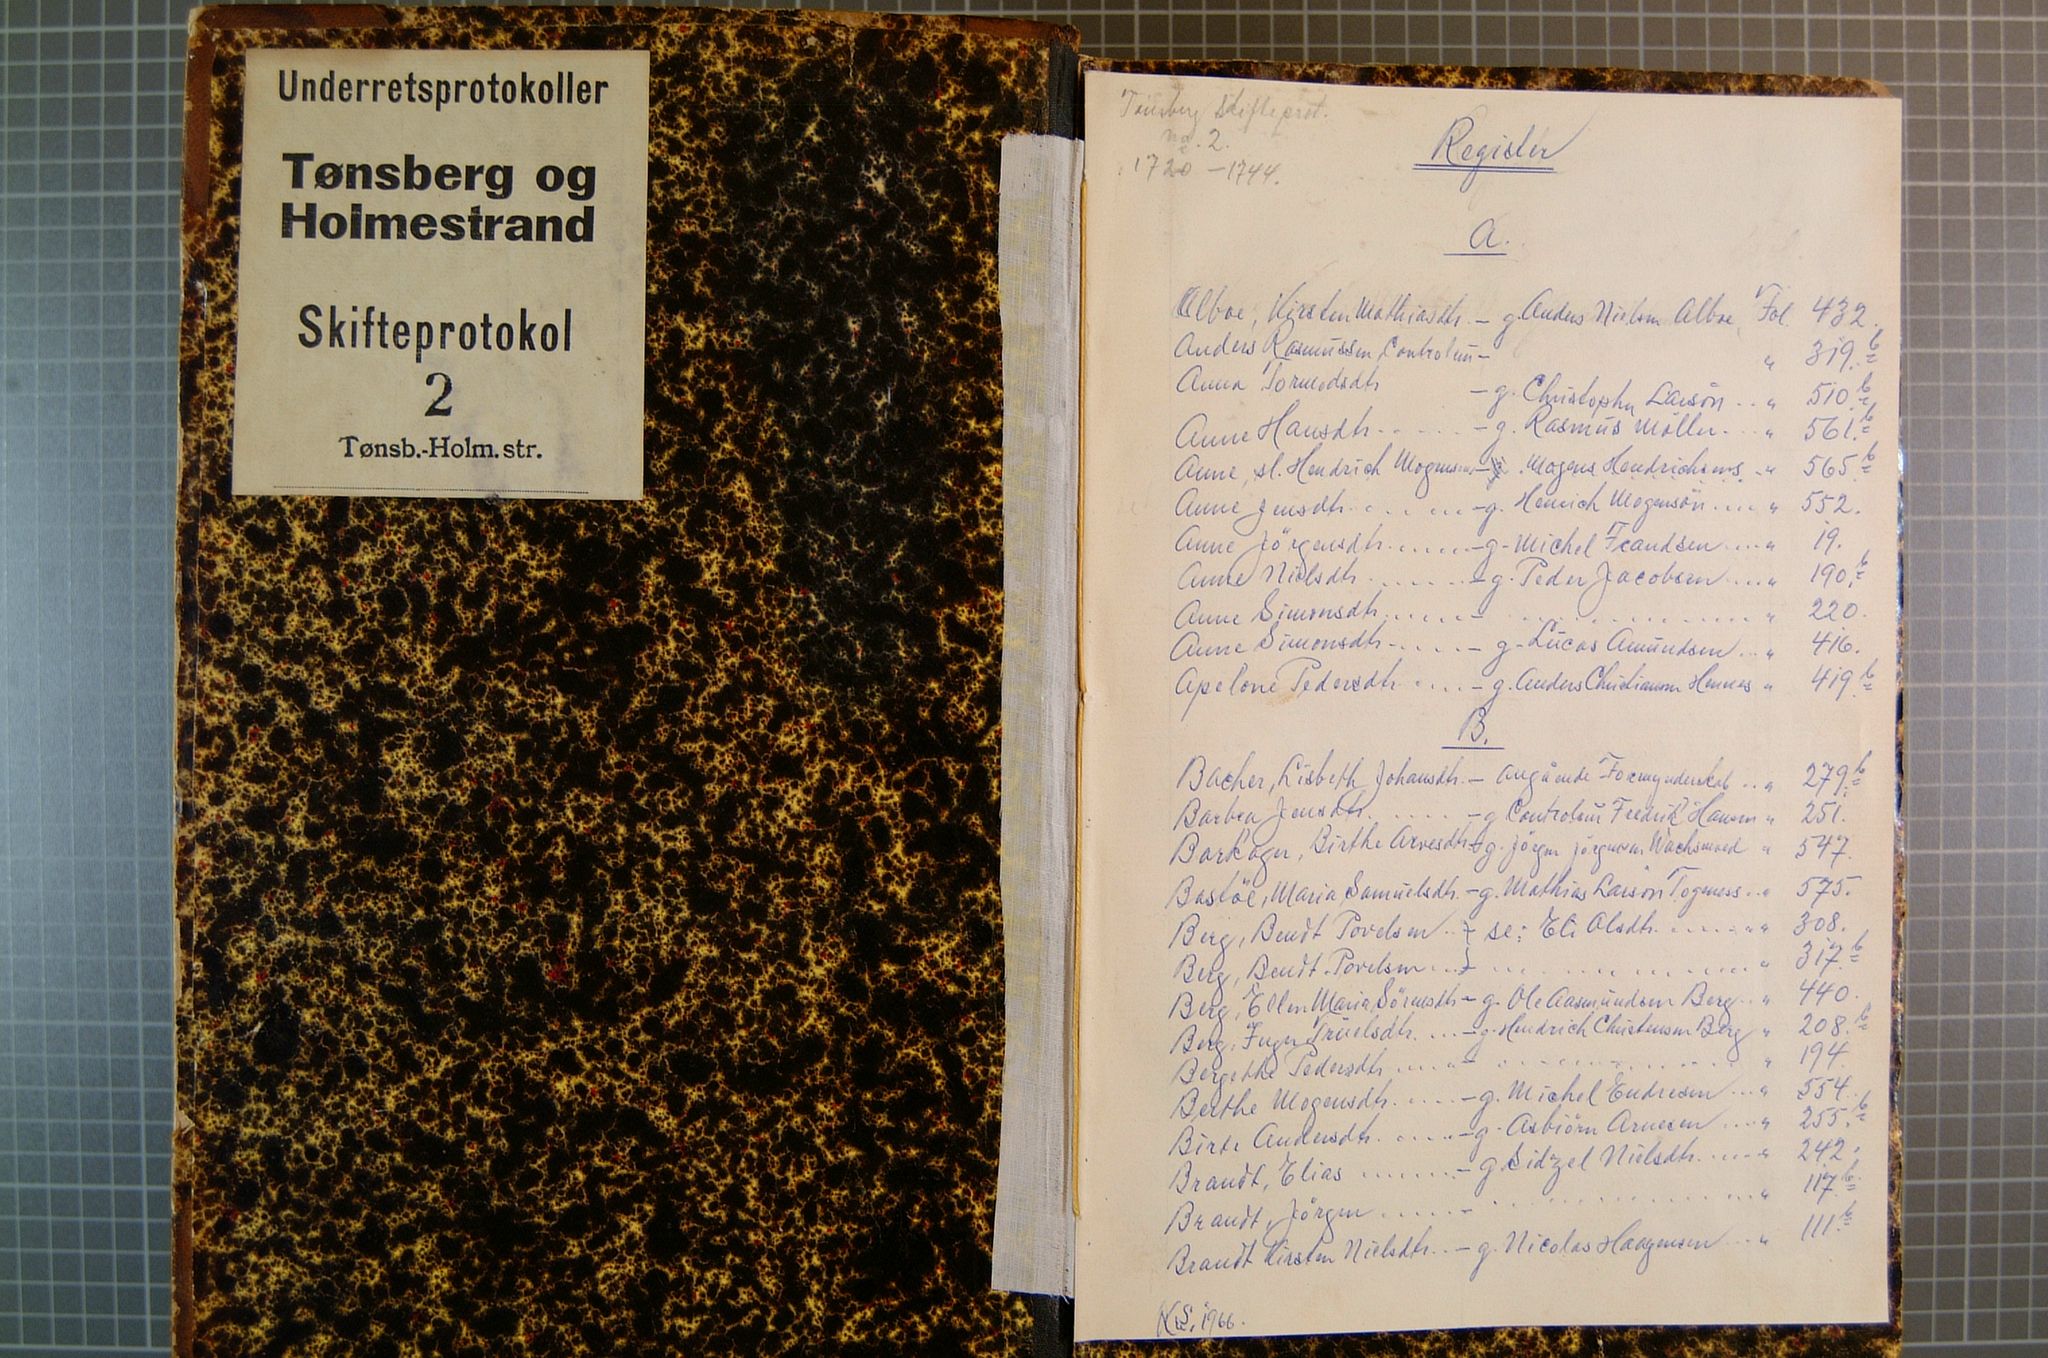 Underretsprotokoller
Tønsberg og
Holmestrand
Skifteprotokol
2
Tønsb.-Holm. str.
Tönsberg Skifteprot.
no. 2.
1720 - 1744.
Register
A.
Alboe, Kirsten Mathiasdtr. - g. Anders Nielsen Alboe Fol. 432.
Anders Rasmussen, Controleur - " 319.b
Anna Tormodsdtr - g. Christopher Larsön .. " 510.b
Anne Hansdtr. .... - g. Rasmus Möller .... " 561.b
Anne, sl. Hendrich Mogensens - Mogens Hendrichsens .. " 565.b
Anne Jensdtr. .... - g. Henrich Mogensön .... " 552.
Anne Jörgensdtr. .... - g. Michel Frandsen .... " 19.
Anne Nielsdtr. .... - g. Peder Jacobsen .... " 190.b
Anne Simonsdtr. .... - .... " 220.
Anne Simonsdtr. .... - g. Lucas Amundsen ... " 416.
Apelone Pedersdtr .... - g. Anders Christiansen Hennes " 419.b
B.
Bacher, Lisbeth Johansdtr. - angående Formynderskab .. " 279.b
Barbra Jensdtr. .... - g. Controleur Fredrik Hansen " 251.
Barkager, Birthe Arvesdtr. - g. Jörgen Jörgensen Wachsmed " 547.
Bastöe, Maria Samuelsdtr. - g. Mathias Larsön Togeness .. " 575.
Berg, Bendt Povelsen .. } se: Eli Olsdtr. .... " 308.
Berg, Bendt Povelsen ... } .... " 317.b
Berg, Ellen Maria Sörensdtr - g. Ole Aasmundsen Berg .. " 440.
Berg, Inger Truelsdtr. .... - g. Hendrich Christensen Berg " 208.b
Bergethe Pedersdtr .... - .... " 194.
Berthe Mogensdtr. .... - g. Michel Endresen ... " 554.
Birte Andersdtr. .... - g. Asbiörn Arnesen .... " 255.b
Brandt, Elias .... - g. Sidzel Nielsdtr. .... " 242.
Brandt, Jörgen .... - .... " 117.b
Brandt Kirsten Nielsdtr. .. - g. Nicolas Haagensen ... " 111.b
1966.